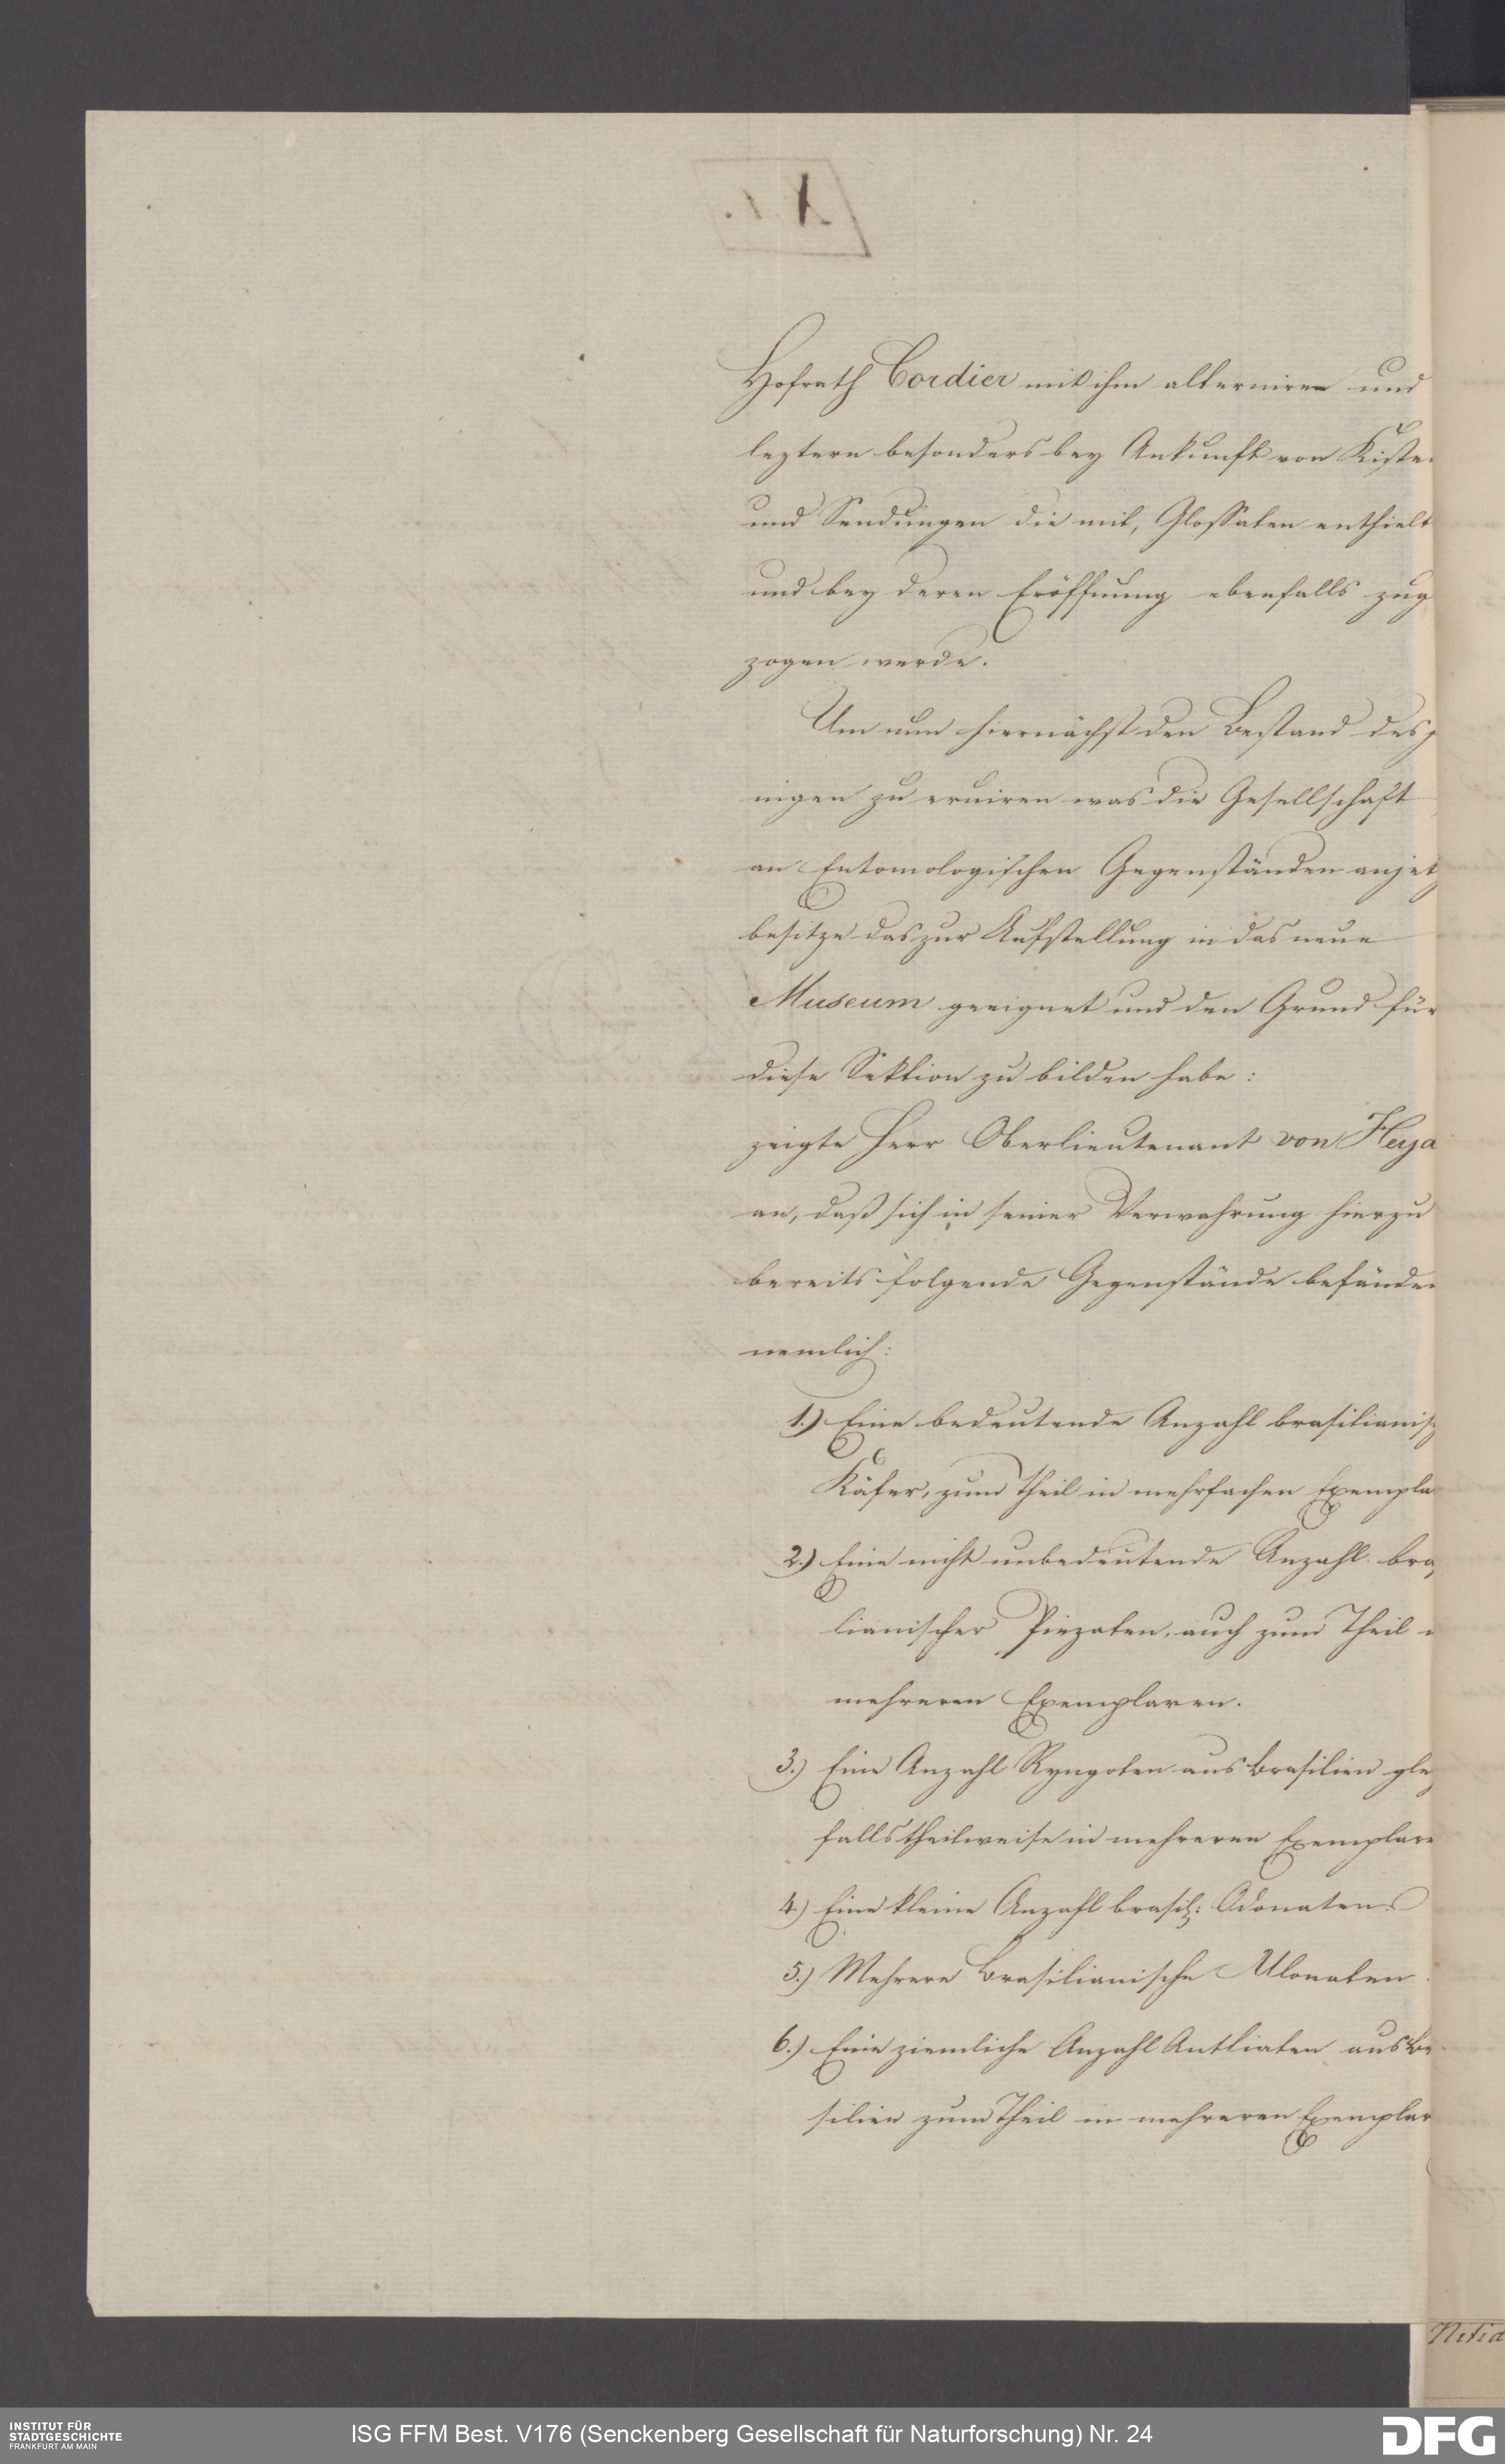 Hofrath Cordier mit ihm alterniren und
leztern besonders bey Ankunft von Kiste
und Sendungen die mit, Glossaten enthielt
und bey deren Eröffnung ebenfalls zug
zogen werde.
Um nun hiernächst den Bestand des
nigen zu eruiren was die Gesellschaft
an Entomologischen Gegenständen anjetz
besitze das zur Aufstellung in das neue
Museum geeignet und den Grund für
diese Sektion zu bilden habe:
zeigte Herr Oberlieutenant von Heya
an, daß sich in seiner Verwahrung hierzu
bereits folgende Gegenstände befände
nemlich:
1.) Eine bedeutende Anzahl brasilianis
Käfer, zum Theil in mehrfachen Exempla
2.) Eine nicht unbedeutende Anzahl bra
lianischer Piezaten, auch zum Theil
mehreren Exemplaren.
3.) Eine Anzahl Ryngoten aus Brasilien gle
falls theilweise in mehreren Exemplare
4.) Eine kleine Anzahl brasil: Odonaten
5.) Mehrere Brasilianische Ulonaten
6.) Eine ziemliche Anzahl Antliaten aus Br
silien zum Theil in mehreren Exemplar
Nitid
INSTITUT FÜR
STADTGESCHICHTE
FRANKFURT AM MAIN
ISG FFM Best. V176 (Senckenberg Gesellschaft für Naturforschung) Nr. 24
DFG